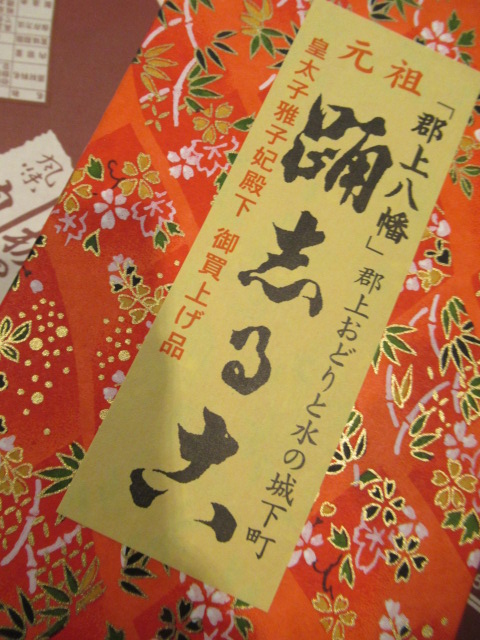 元祖
「郡上八幡」郡上おどりと水の城下町
踊しるこ
皇太子雅子妃殿下 御買上げ品
風味